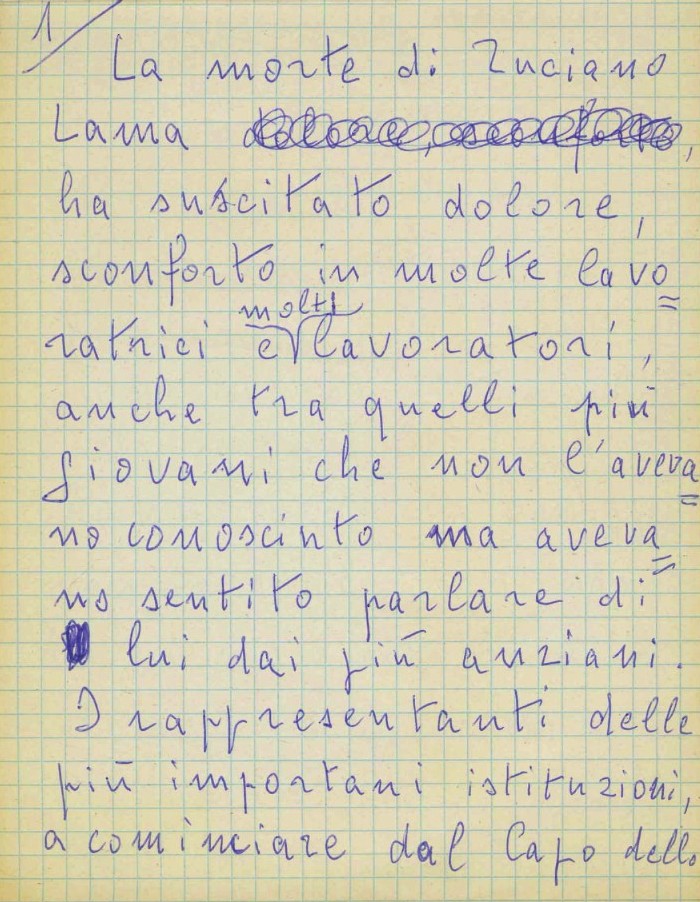 1
La morte di Luciano
Lama
ha suscitato dolore,
sconforto in molte lavo=
molti
ratrici e lavoratori,
anche tra quelli più
giovani che non l'aveva=
no conosciuto ma aveva=
no sentito parlare di
lui dai più anziani.
I rappresentanti delle
più importani istituzioni,
a cominciare dal Capo dello